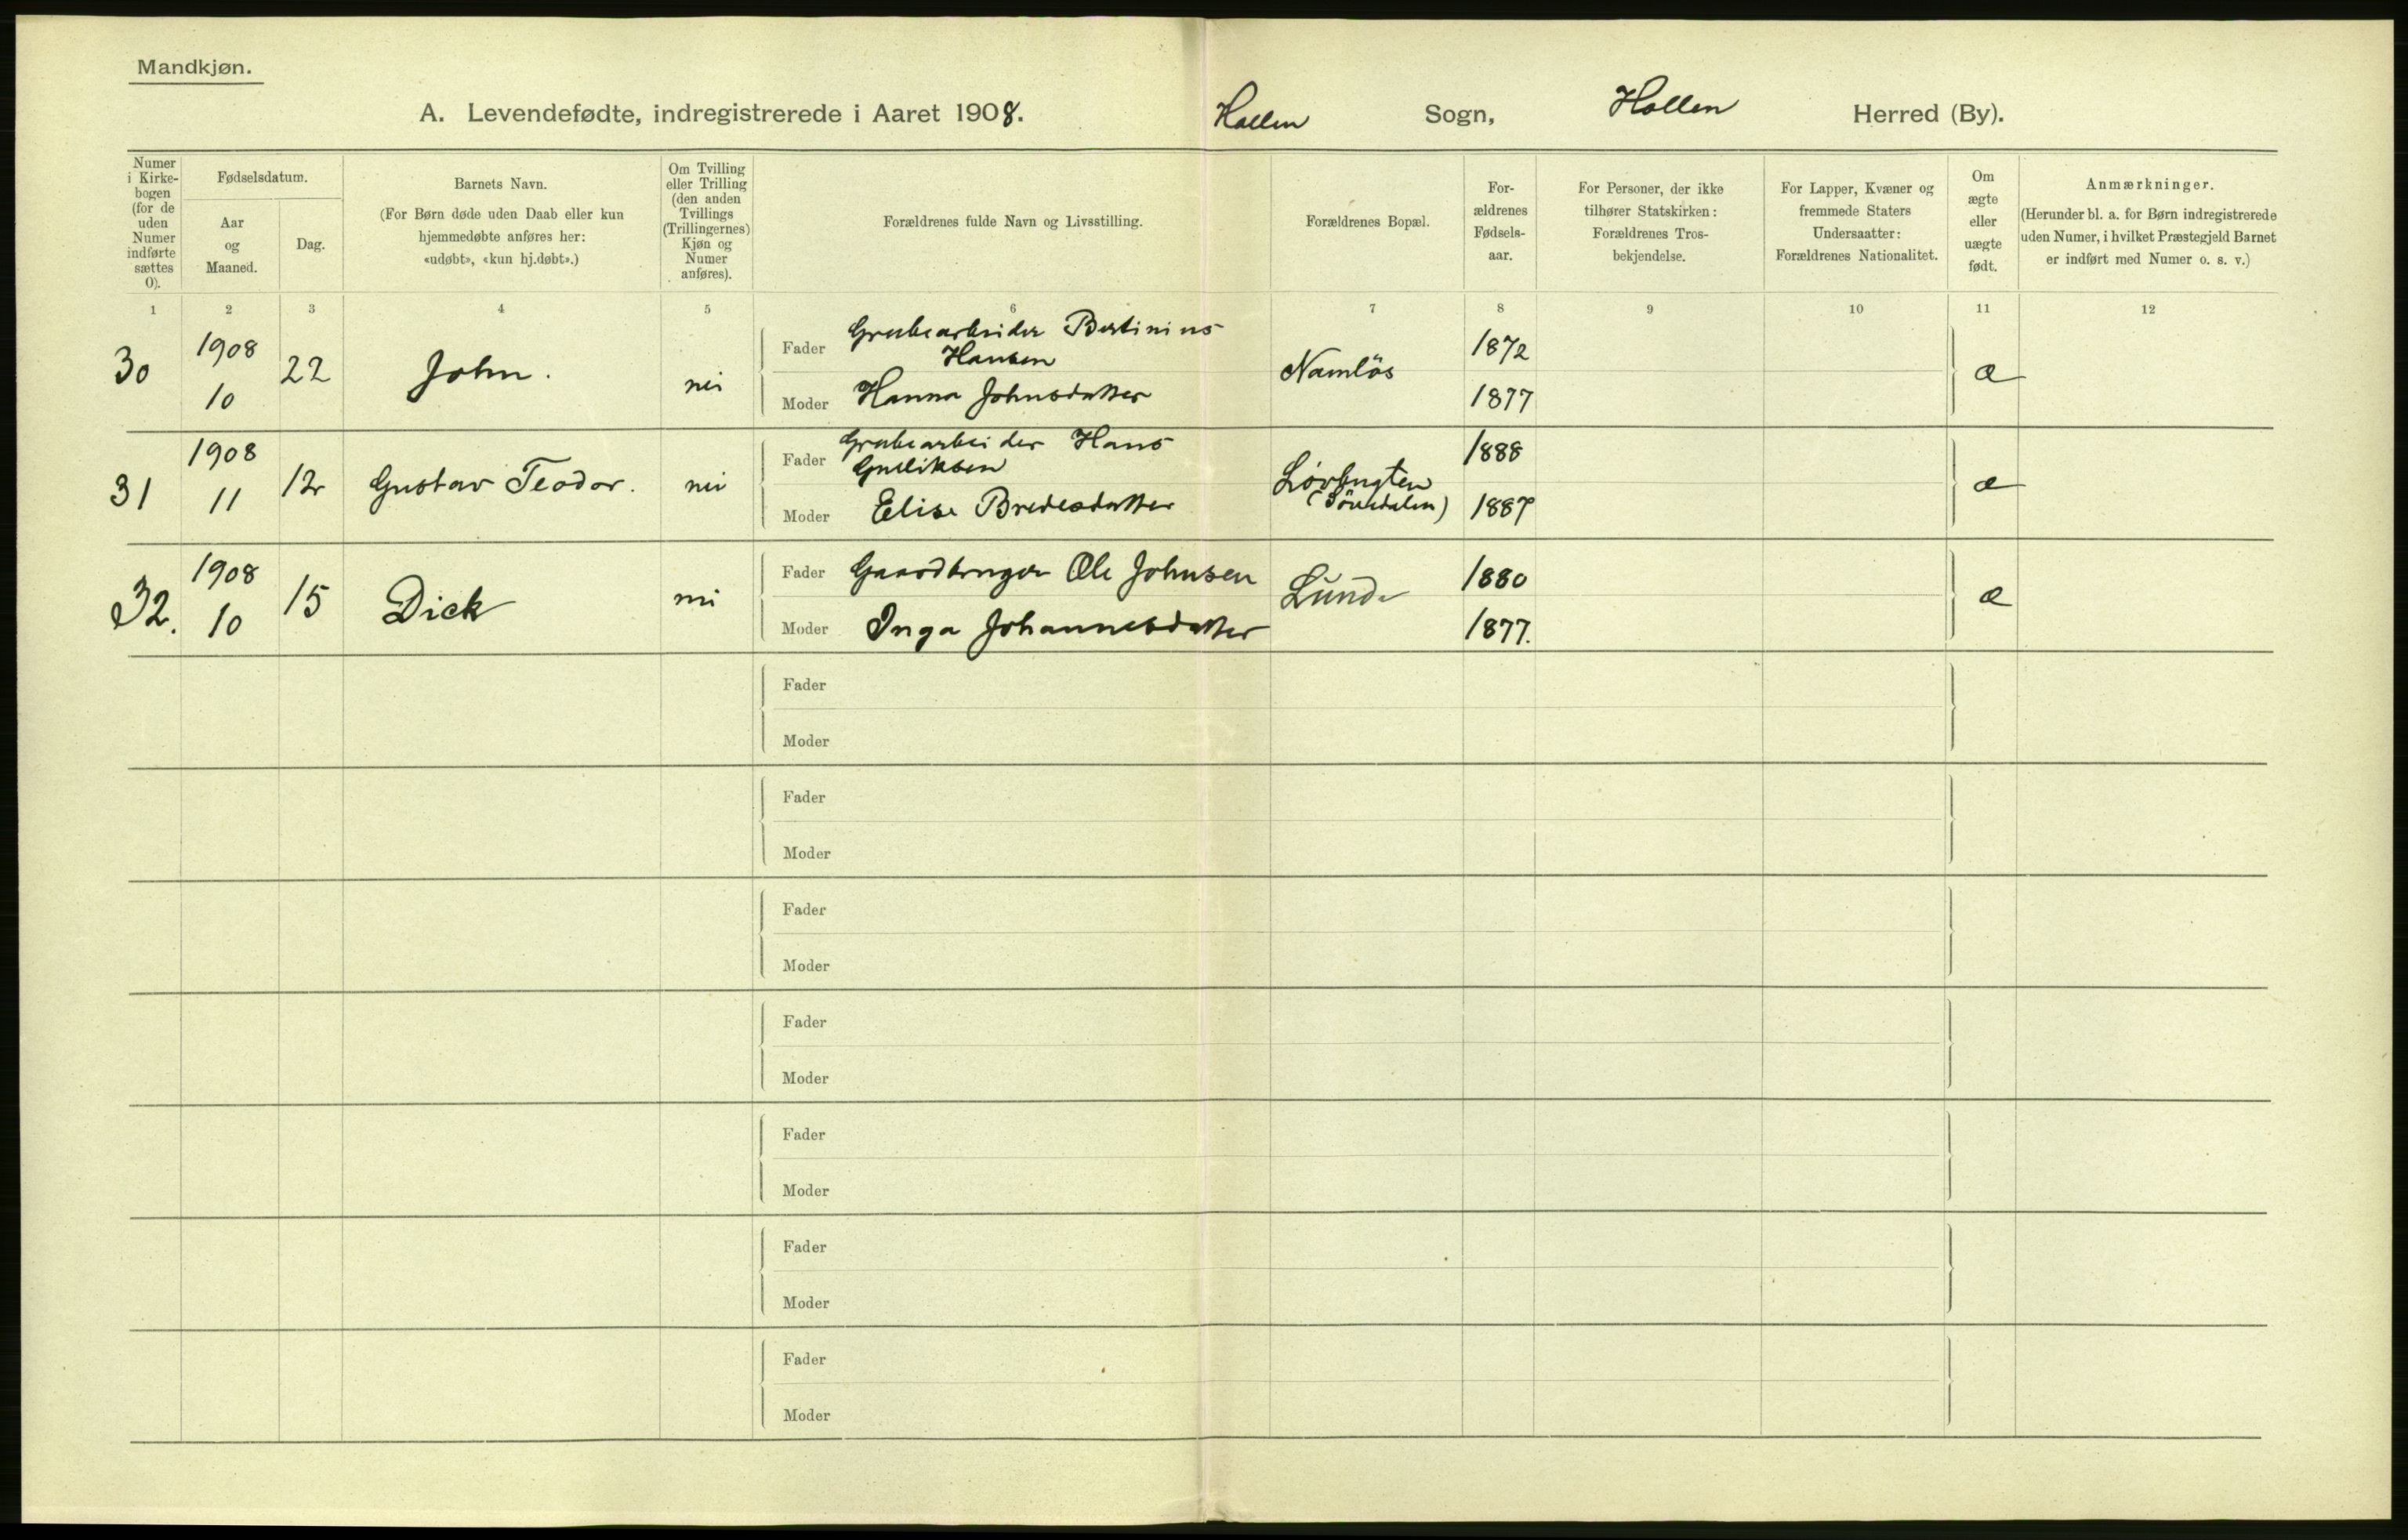 Mandkjøn.
A. Levendefødte, indregistrerede i Aaret 1908. Hollen Sogn, Hollen Herred (By).
Numer i Kirke-bogen (for de uden Numer indførte sættes O).
Fødselsdatum.
Aar og Maaned.
Dag.
Barnets Navn.
(For Børn døde uden Daab eller kun
hjemmedøbte anføres her:
«udøbt», «kun hj.døbt».)
Om Tvilling
eller Trilling
(den anden
Tvillings
(Trillingernes)
Kjøn og
Numer
anføres).
Forældrenes fulde Navn og Livsstilling.
Forældrenes Bopæl.
For-
ældrenes
Fødsels-
aar.
For Personer, der ikke
tilhører Statskirken:
Forældrenes Tros-
bekjendelse.
For Lapper, Kvæner og
fremmede Staters
Undersaatter:
Forældrenes Nationalitet.
Om
ægte
eller
uægte
født.
Anmærkninger.
(Herunder bl. a. for Børn indregistrerede
uden Numer, i hvilket Præstegjeld Barnet
er indført med Numer o. s. v.)
1 2 3 4 5 6 7 8 9 10 11 12
30 1908 10 22 John. nei
Fader Grubearbeider Bertinius
Hansen 1872
Moder Hanna Johnsdatter 1877
Namløs æ
31 1908 11 12 Gustav Teodor. nei
Fader Grubearbeider Hans
Gulliksen 1888
Moder Elise Bredesdatter 1887
æ
32. 1908 10 15 Dick nei
Fader Gaardbruger Ole Johnsen 1880
Moder Inga Johannesdatter 1877.
Lunde æ
Fader
Moder
Fader
Moder
Fader
Moder
Fader
Moder
Fader
Moder
Fader
Moder
Fader
Moder